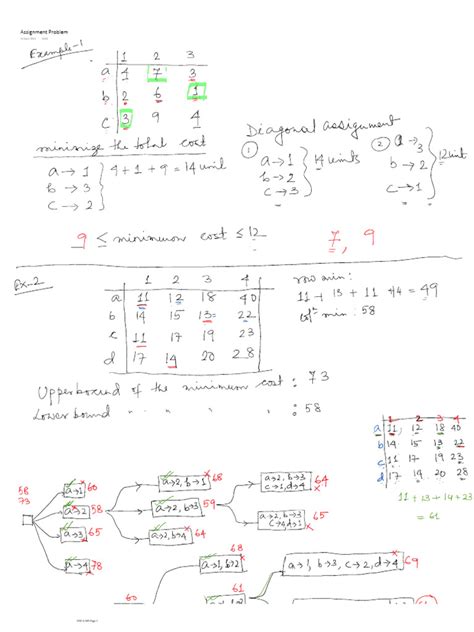 Assignment Problem
Example-1
1 2 3
a 4 7 3
b 2 6 1
c 3 9 4
minimize the total cost
a→1
b→3
c→2
4+1+9=14 unit
Diagonal assignment
① a→1
b→2
c→3
14 units
② a→3
b→2
c→1
12 unit
9 ≤ minimum cost ≤ 12
7, 9
Ex-2
1 2 3 4
a 11 12 18 40
b 14 15 13 22
c 11 17 19 23
d 17 14 20 28
row min:
11 + 13 + 11 + 14 = 49
colⁿ min: 58
Upper bound of the minimum cost : 73
Lower bound " " " " : 58
1 2 3 4
a 11, 12 18 40
b 14 15 13 22
c 11 17 19 23
d 17 14 20 28
11 + 13 + 14 + 23
= 61
58
73
a→1 60
a→2 58
a→3 65
a→4 78
a→2, b→1 68
a→2, b→3 59
a→2, b→4 64
a→2, b→3
c→1, d→4 64
a→2, b→3
c→4, d→1 65
68
a→1, b→2
60
61
a→1, b→3, c→2, d→4 69